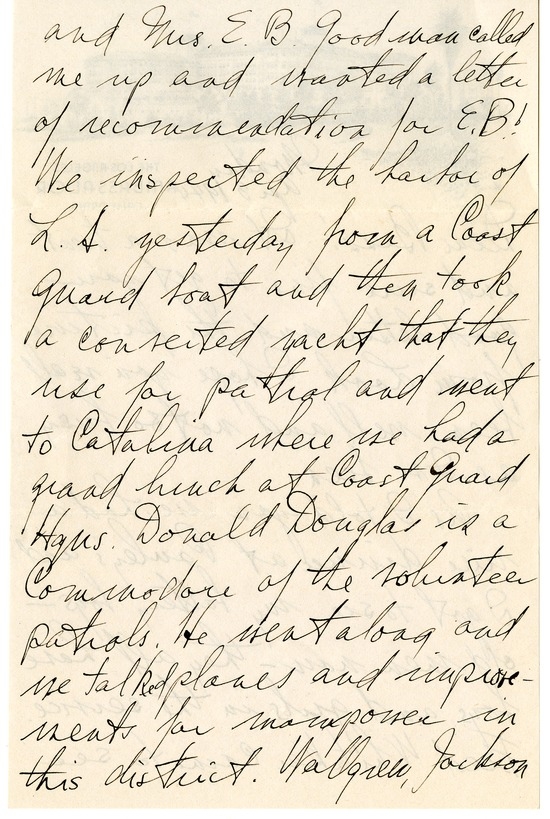 and Mrs. E. B. Goodman called
me up and wanted a letter
of recommendation for E.B.!
We inspected the harbor of
L. A. yesterday from a Coast
Guard boat and then took
a converted yacht that they
use for patrol and went
to Catalina where we had a
grand lunch at Coast Guard
Hqus. Donald Douglas is a
Commodore of the volunteer
patrols. He went along and
we talked planes and improve-
ments for manpower in
this district. Wallgren, Jackson